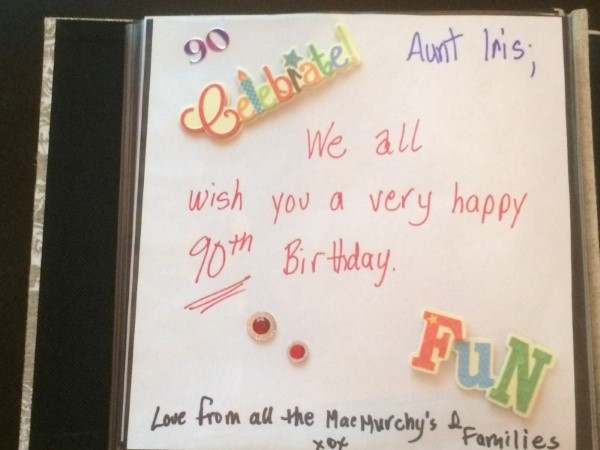 90
Celebrate!
Aunt Iris;
We all
wish you a very happy
90th Birthday.
FuN
Love from all the MacMurchy's &
xox Families